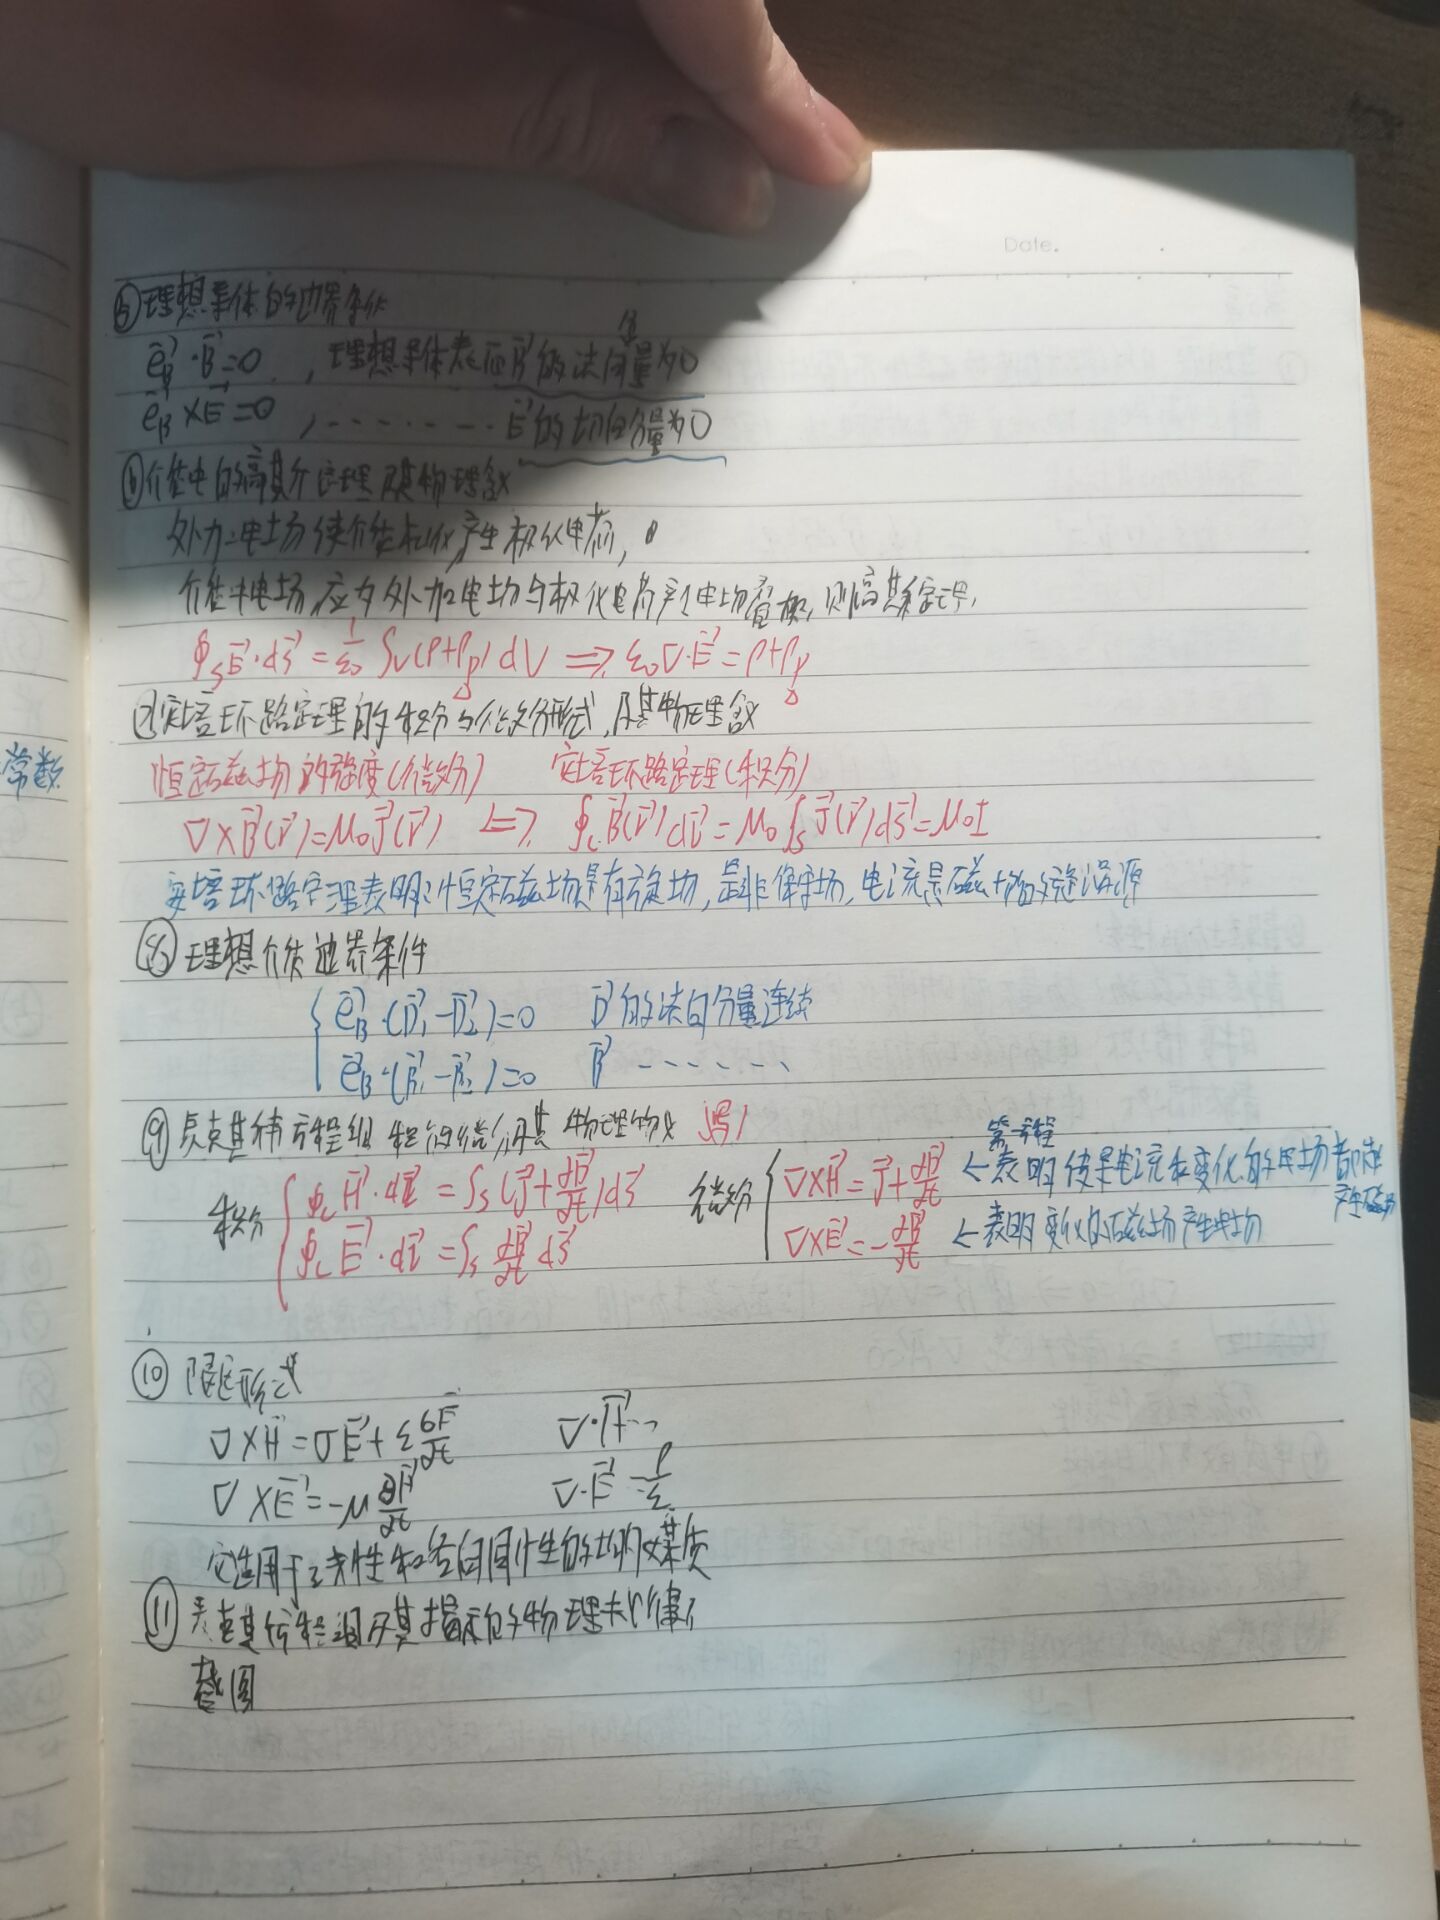 Date.
⑤理想导体的边界条件
e⃗B·B⃗=0 ,理想导体表面B⃗的法向分量为0
e⃗B×E⃗=0 ,........E⃗的切向分量为0
⑥介质中的高斯定理及其物理含义
外加电场使介质极化产生极化电荷,
介质中电场,应为外加电场与极化电荷产生电场叠加,则高斯定理,
∮S E⃗·dS⃗ = 1/ε0 ∫V(ρ+ρp)dV ⇒ ε0∇·E⃗=ρ+ρp
⑦安培环路定理的积分与微分形式,及其物理含义
常数
恒定磁场的强度(微分) 安培环路定理(积分)
∇×B⃗(r⃗)=μ0J⃗(r⃗) ⇔ ∮c B⃗(r⃗)dl⃗=μ0∫s J⃗(r⃗)dS⃗=μ0I
安培环路定理表明:恒定磁场是有旋场,是非保守场,电流是磁场的旋涡源
⑧理想介质边界条件
e⃗B·(D⃗1-D⃗2)=0 D⃗的法向分量连续
e⃗B·(B⃗1-B⃗2)=0 B⃗ ......
⑨麦克斯韦方程组 积分微分及其物理
积分 ∮c H⃗·dl⃗ = ∫s(J⃗+∂D⃗/∂t)dS⃗ 微分 ∇×H⃗=J⃗+∂D⃗/∂t ←第一方程表明 电流和变化的电场都能产生磁场
∮c E⃗·dl⃗ =∫s ∂B⃗/∂t dS⃗ ∇×E⃗=-∂B⃗/∂t ←表明变化的磁场产生电场
⑩限定形式
∇×H⃗=σE⃗+ε∂E⃗/∂t ∇·H⃗..
∇×E⃗=-μ∂H⃗/∂t ∇·E⃗=ρ/ε
它适用于线性和各向同性的均匀媒质
⑪麦克斯方程组及其揭示的物理规律
截图